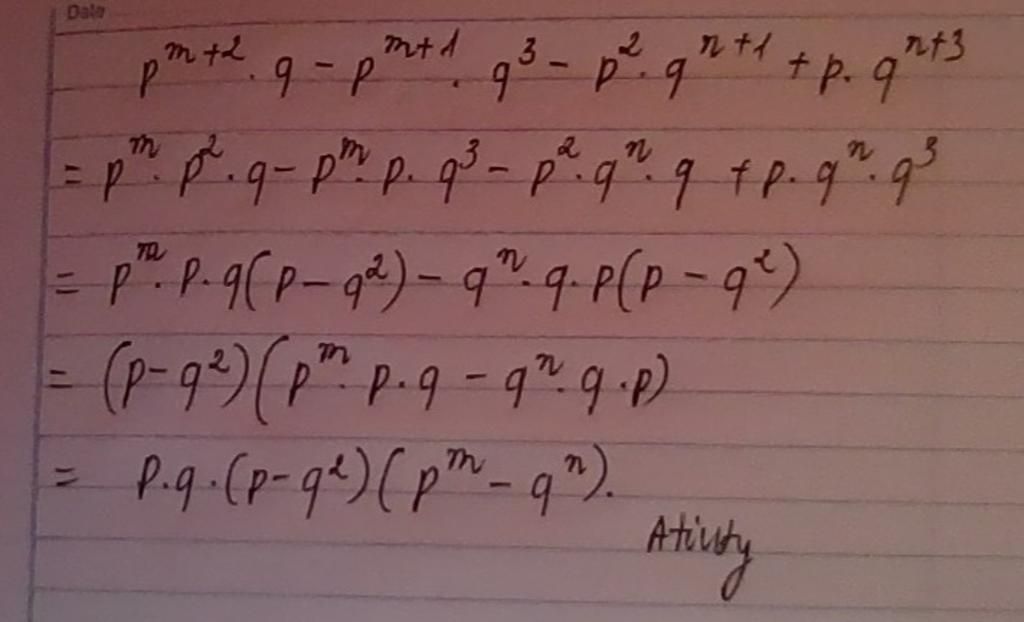 Date
p^{m+2} · q - p^{m+1} · q^3 - p^2 · q^{n+1} + p · q^{n+3}
= p^m · p^2 · q - p^m · p · q^3 - p^2 · q^n · q + p · q^n · q^3
= p^m · p · q(p - q^2) - q^n · q · p(p - q^2)
= (p - q^2)(p^m · p · q - q^n · q · p)
= p · q · (p - q^2)(p^m - q^n).